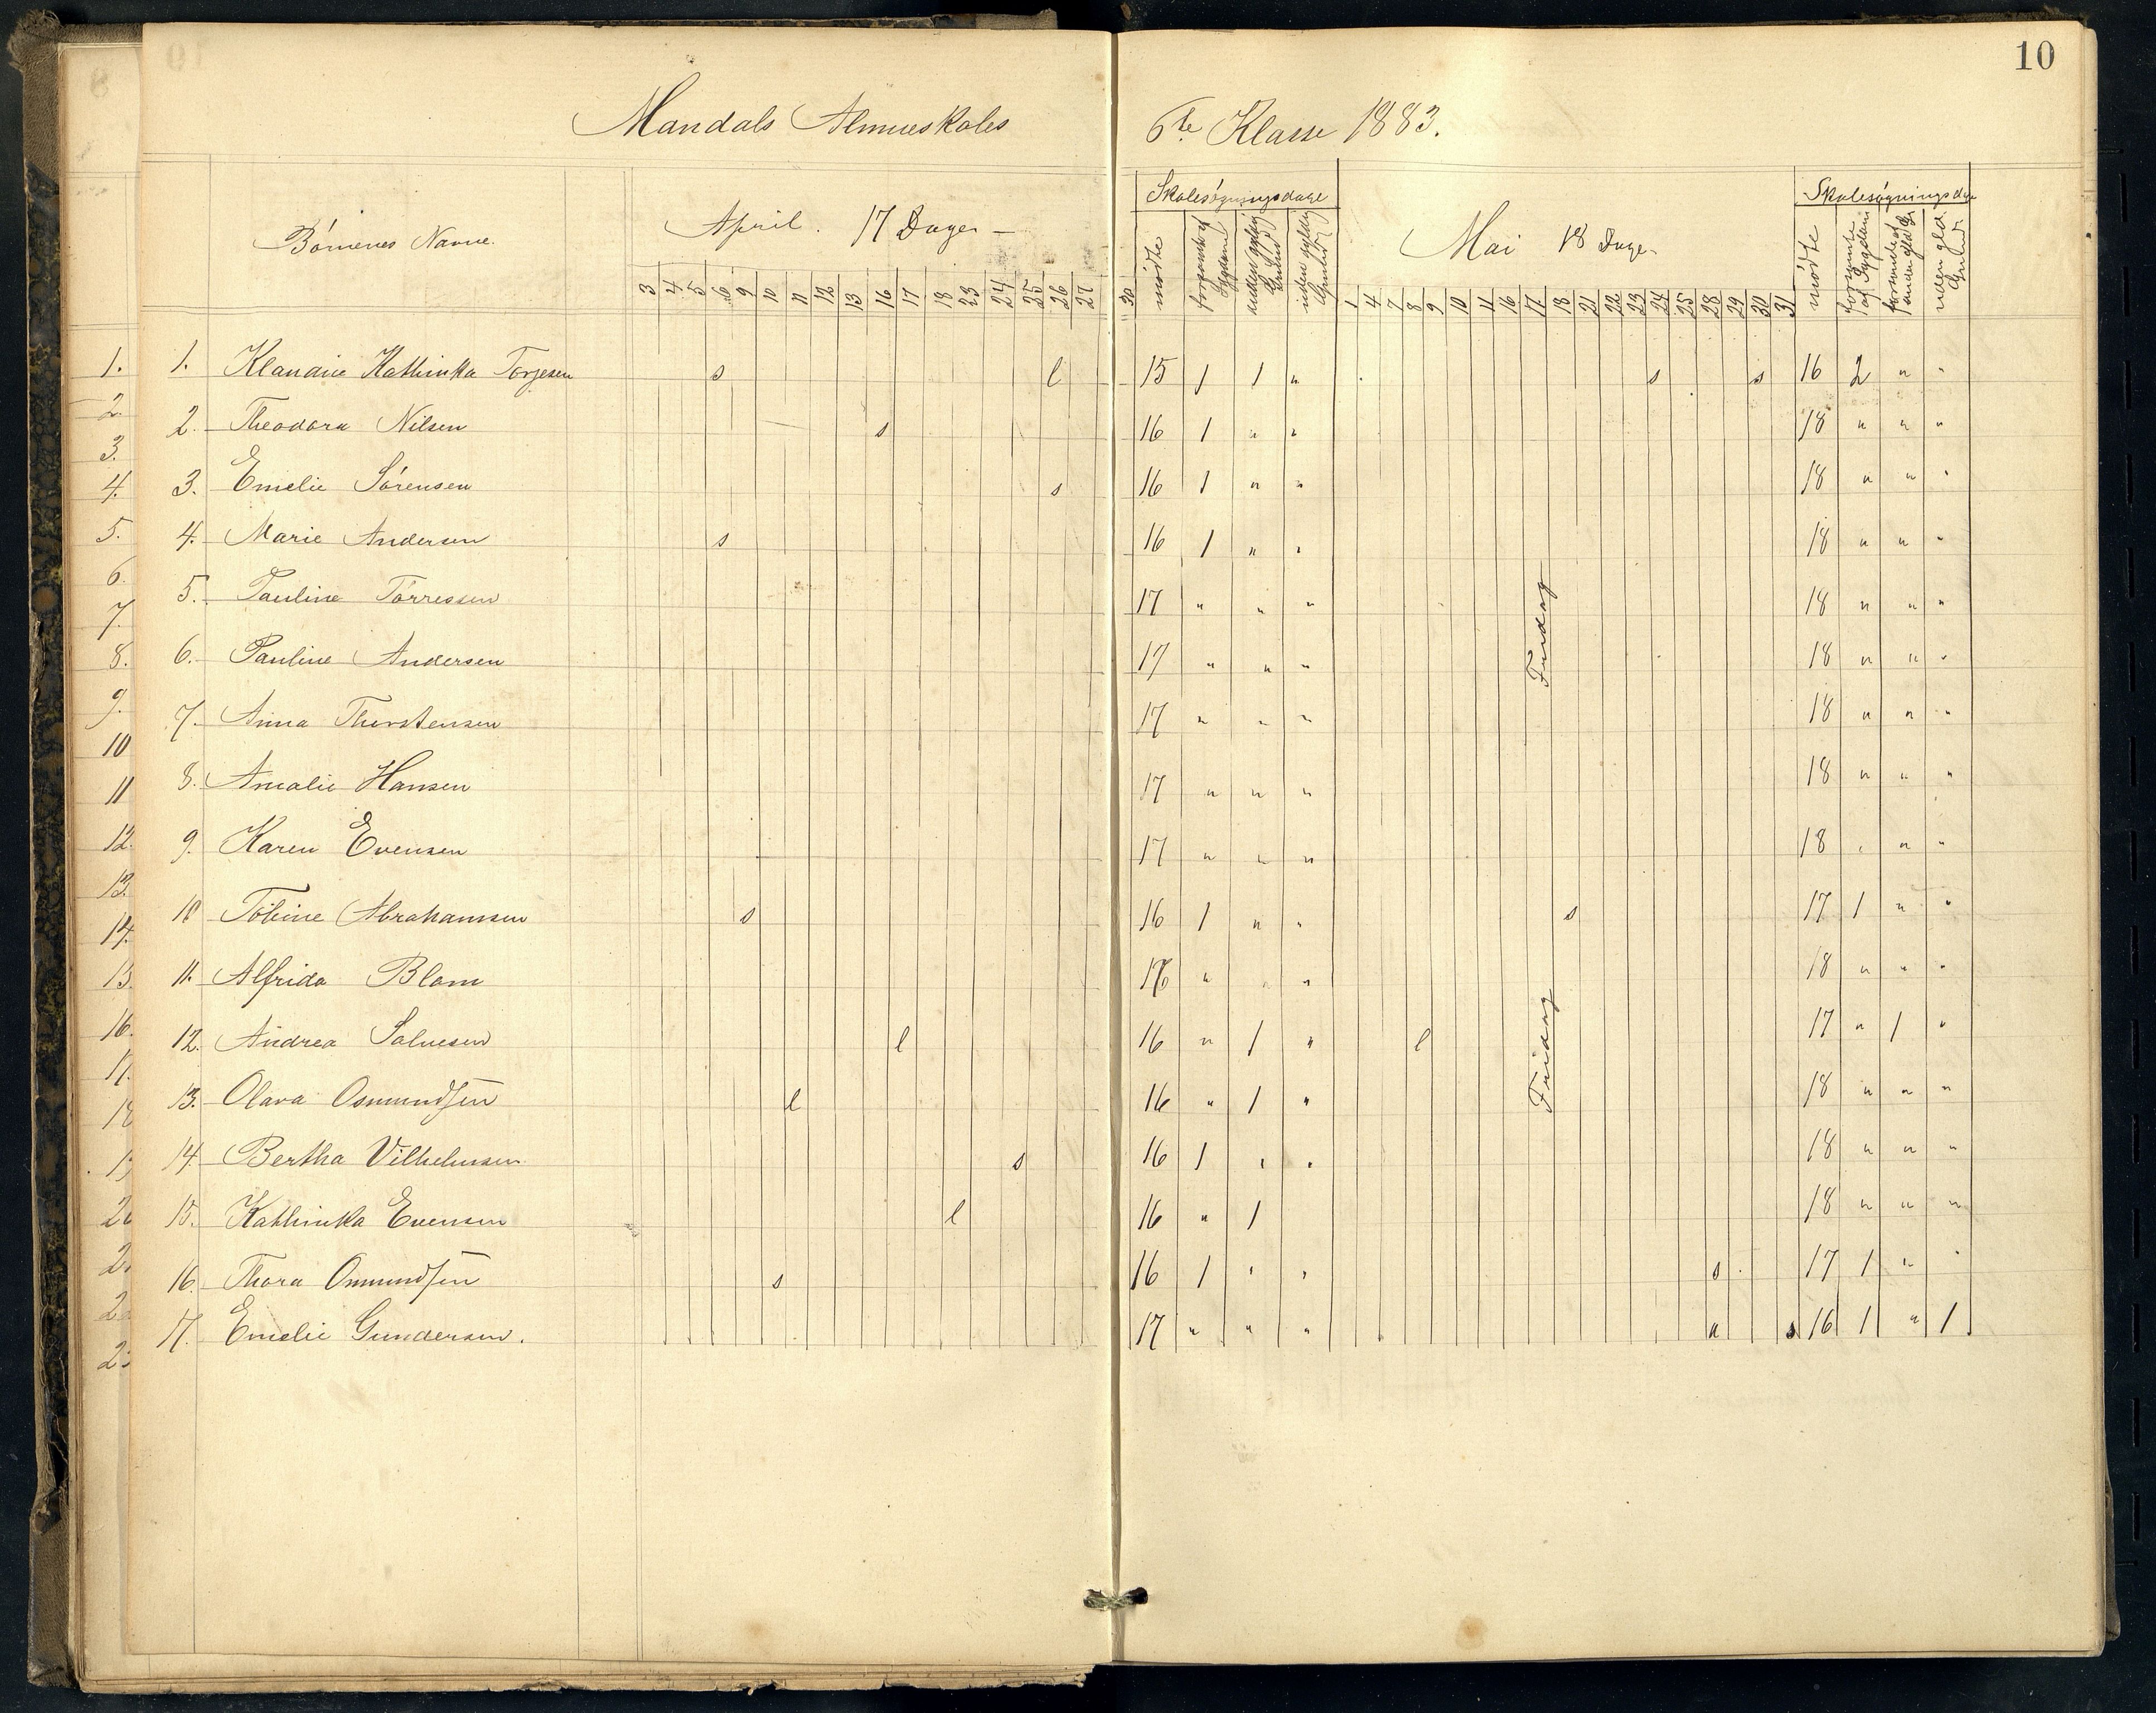 10
Mandals Almueskoles 6te Klasse 1883.
Börnenes Navne. April. 17 Dage – Skolesøgningsdage Mai 18 Dage – Skolesøgningsdage
3 4 5 6 9 10 11 12 13 16 17 18 23 24 25 26 27 30 mødte 1 4 7 8 9 10 11 16 17 18 21 22 23 24 25 28 29 30 31 mødte
1. 1. Klanarie Kathinka Torjesen s l 15 1 1 " s s 16 2 " "
2. 2. Theodora Nilsen s 16 1 " " 18 " " "
3. 3. Emelie Sörensen s 16 1 " " 18 " " "
4. 4. Marie Andersen s 16 1 " " 18 " " "
5. 5. Pauline Törressen 17 " " " 18 " " "
6. 6. Pauline Andersen 17 " " " Fridag 18 " " "
7. 7. Anna Thorstensen 17 " " " 18 " " "
8. 8. Amalie Hansen 17 " " " 18 " " "
9. 9. Karen Evensen 17 " " " 18 " " "
10 10 Tobine Abrahamsen s 16 1 " " s 17 1 " "
11 11. Alfrida Blom 17 " " " 18 " " "
12. 12. Andrea Salvesen l 16 " 1 " l Fridag 17 " 1 "
13. 13. Olava Osmundsen l 16 " 1 " 18 " " "
14. 14. Bertha Vilhelmsen s 16 1 " " 18 " " "
15. 15. Kathinka Evensen l 16 " 1 18 " " "
16. 16. Thora Osmundsen s 16 1 " " s 17 1 " "
17. 17. Emelie Gundersen. 17 " " " u s 16 1 " 1